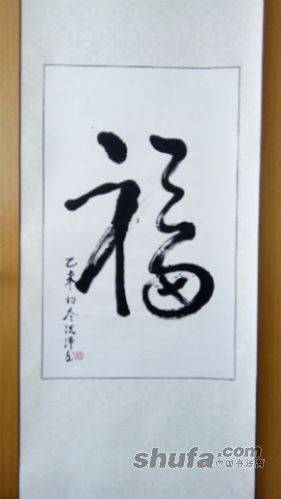 福
乙未初冬洪泽书
shufa.com
中国书法网